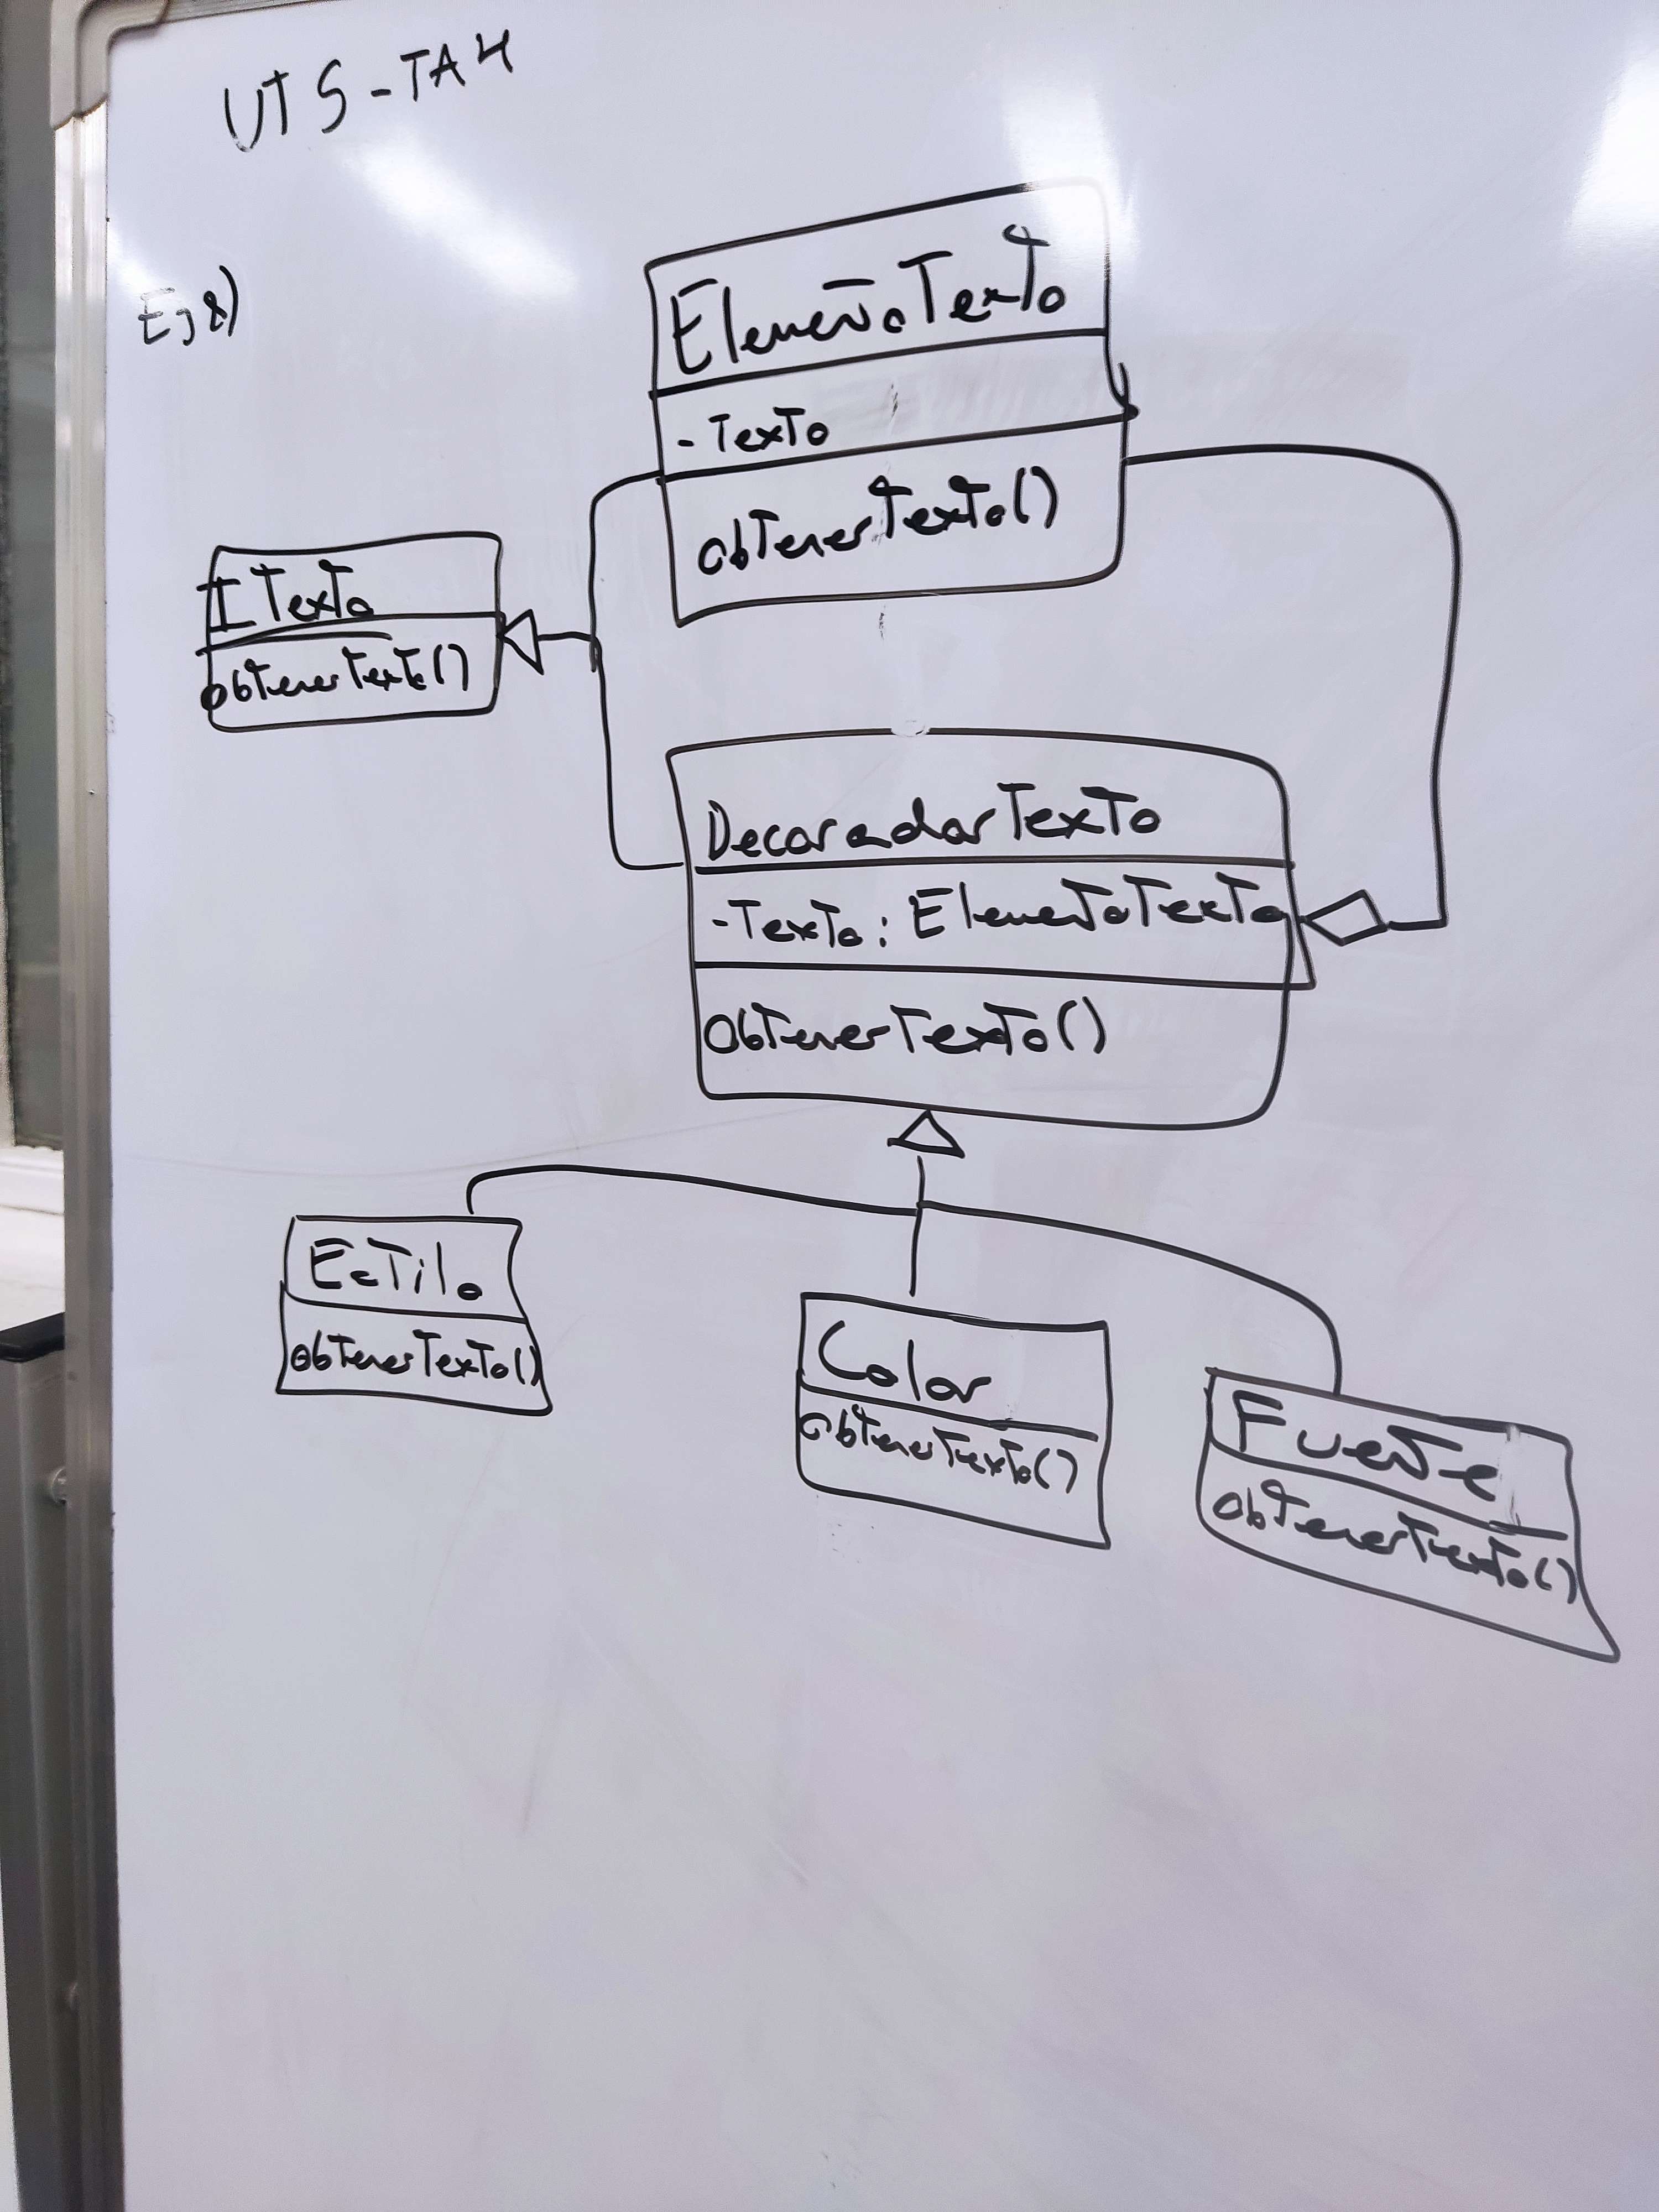 UT5-TA4
Ej 8)
ElementoTexto
- Texto
obtenerTexto()
ITexto
obtenerTexto()
DecoradorTexto
-Texto: ElementoTexto
obtenerTexto()
Estilo
obtenerTexto()
Color
obtenerTexto()
Fuente
obtenerTexto()